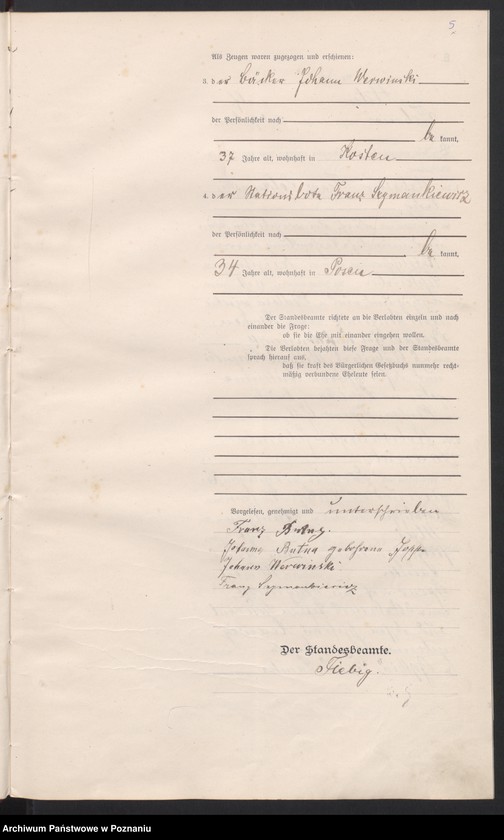 5
Als Zeugen waren zugezogen und erschienen:
3. der Bäcker Johann Werwinski
der Persönlichkeit nach
be kannt,
37 Jahre alt, wohnhaft in Kosten
4. der Stationsbote Franz Szymankiewicz
der Persönlichkeit nach
be kannt,
34 Jahre alt, wohnhaft in Posen
Der Standesbeamte richtete an die Verlobten einzeln und nach
einander die Frage:
ob sie die Ehe mit einander eingehen wollen.
Die Verlobten bejahten diese Frage und der Standesbeamte
sprach hierauf aus,
daß sie kraft des Bürgerlichen Gesetzbuchs nunmehr recht-
mäßig verbundene Eheleute seien.
Vorgelesen, genehmigt und unterschrieben
Franz
geborene
Johann Werwinski
Franz Szymankiewicz
Der Standesbeamte.
Fiebig.
Archiwum Państwowe w Poznaniu